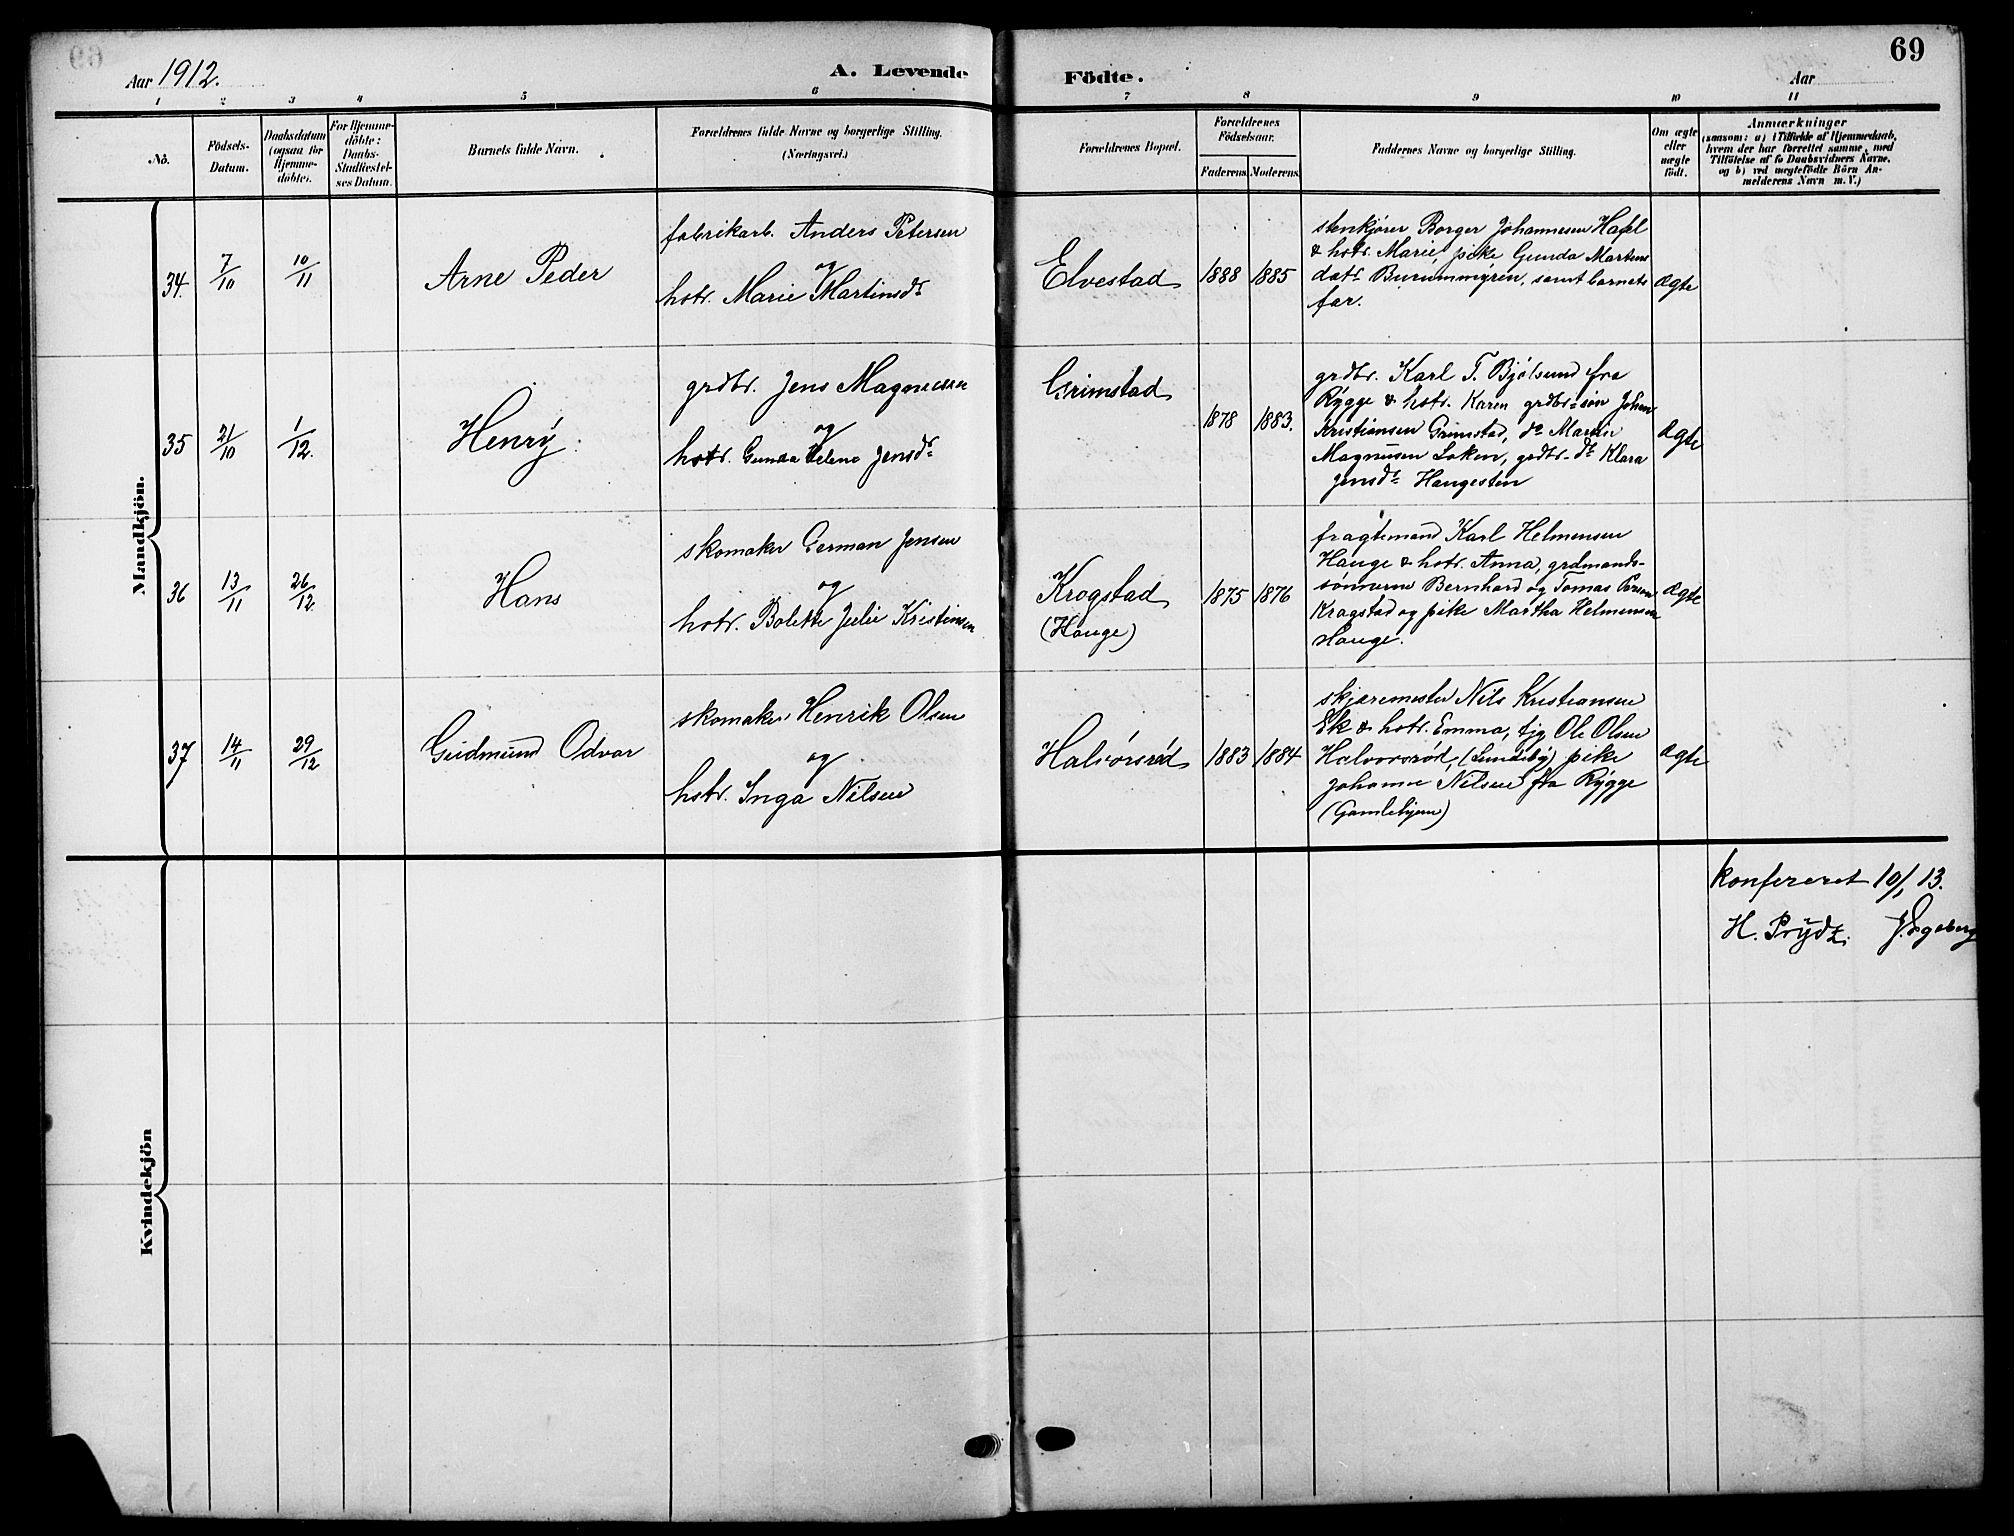 69
Aar 1912.
A. Levende Födte.
Aar
1 2 3 4 5 6 7 8 9 10 11
No.
Födsels-Datum.
Daabsdatum (ogsaa for Hjemme-döbte).
For Hjemme-döbte: Daabs-Stadfæstel-ses Datum.
Barnets fulde Navn.
Forældrenes fulde Navne og borgerlige Stilling. (Næringsvei.)
Forældrenes Bopæl.
Forældrenes Födselsaar.
Faderens Moderens
Faddernes Navne og borgerlige Stilling.
Om ægte eller uægte födt.
Anmærkninger
(saasom: a) i Tilfælde af Hjemmedaab,
hvem der har forrettet samme, med
Tilföielse af to Daabsvidners Navne.
og b) ved uægtefödte Börn An-
melderens Navn m. V.)
Mandkjön.
34. 7/10 10/11
Arne Peder
fabrikarb. Anders Petersen
og
hstr. Marie Martinsdr
Elvestad
1888 1885
stenkjører Borger Johannesen Hafel
& hstr. Marie, pike Gunda Martens
datr Burummyren, samt barnets
far.
ægte
35 21/10 1/12.
Henrÿ
grdbr. Jens Magnussen
og
hstr. Gunda Helene Jensdr
Grimstad
1878 1883.
grdbr. Karl T. Bjölsund fra
Rÿgge & hstr. Karen grdbr=søn Johan
Kristiansen Grimstad, do Martin
Magnusen Løken, grdbr-dr Klara
Jensdr Haugesten
ægte
36 13/11 26/12
Hans
skomaker German Jensen
og
hstr. Bolette Julie Kristiansen
Krogstad
(Hauge)
1875 1876
fragtemand Karl Helmensen
Hauge & hstr. Anna, grdmands-
sönnerne Bernhard og Tomas
Kragstad og pike Martha Helmensen
Hauge.
ægte
37 14/11 29/12
Gudmund Odvar
skomaker Henrik Olsen
og
hstr. Inga Nilsen
Halvorsrød
1883 1884
skjæremester Nils Kristiansen
Ek & hstr. Emma, tjg Ole Olsen
Halvorsrød, (Lundeby) pike
Johanne Nilsen fra Rÿgge
(Gamlehjem)
ægte
Kvindekjön
konfereret 10/1 13.
H. Prÿdz.